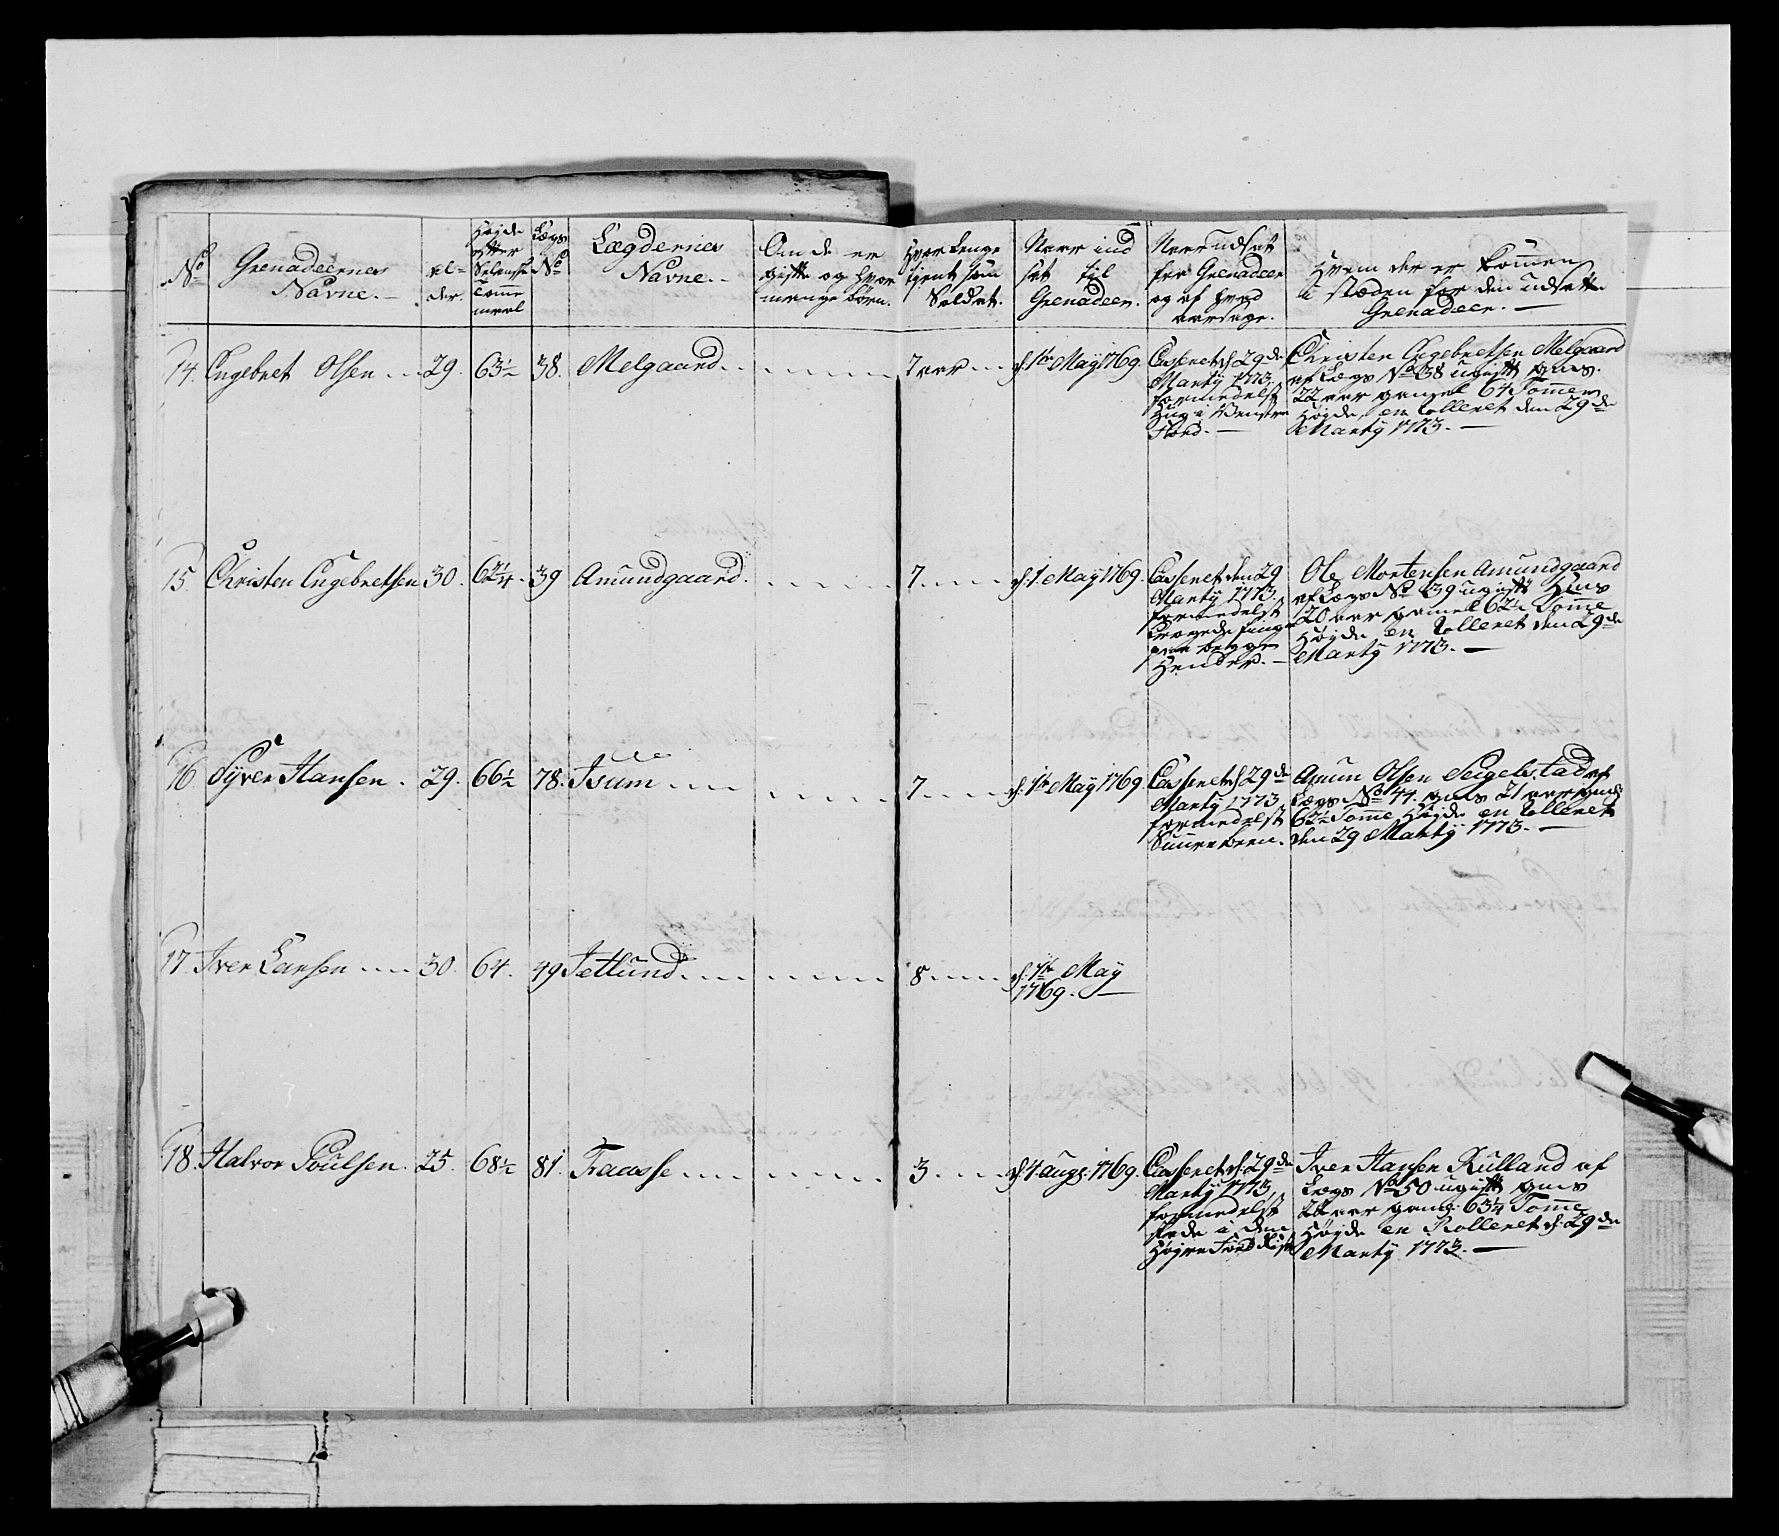 No
Grenadeernes
Navne. —
al-
der.
Høyde
efter
Tomme
maal
Lægs
No
Lægdernes
Navne. -
Om de er
gifte og hvor
mange børn.
Hvor lenge
tient som
Soldat.
Naar ind
sat til
Grenadeer.
Naar udsat
fra Grenadeer
og af hvad
aarsage.
Hvem der er kommen
i stæden for den udsatte
Grenadeer. —
14. Engebret Olsen 29. 63½ 38. Melgaard 7 aar d: 1te May 1769.
Casseret d: 29de
Marty 1773,
formedelst
Hug i Venstre
Foed. —
Christen Engebretsen Melgaard
af Lægs No 38 ugift
22 aar gamel 64 Tommer
Høyde, en Rolleret den 29de
Marty 1773. —
15. Christen Engebretsen 30. 62¼. 39 Amundgaard. 7 d: 1. May 1769.
Casseret den 29
Marty 1773,
formedelst
Kragede finger
paa begge
Hender. —
Ole Mortensen Amundgaard
af Lægs No 39 ugift
20 aar gamel 62½ Tomme
Høyde en Rolleret den 29de
Marty 1773. —
16 Syver Hansen. 29. 66½ 78. Isum 7 d: 1te May 1769
Casseret d: 29de
Marty 1773
formedelst
Suure been.
Amun Olsen Seigelstad af
Lægs No 44. 21 aar gamel
62½ Tomme Høyde en Rolleret
den 29 Marty 1773. —
17. Iver Larsen 30. 64. 49 Jetlund 8 d: 1te May
1769. —
18. Halvor Poulsen. 25. 68½ 81. Fraasse 3 d: 4 aug: 1769.
Casseret d: 29de
Marty 1773,
formedelst
skade i den
Høyre Foed
Iver Hansen Rulland af
Lægs No 50 ugift
22 aar gamel 63¼ Tomme
Høyde en Rolleret d: 29de
Marty 1773. —